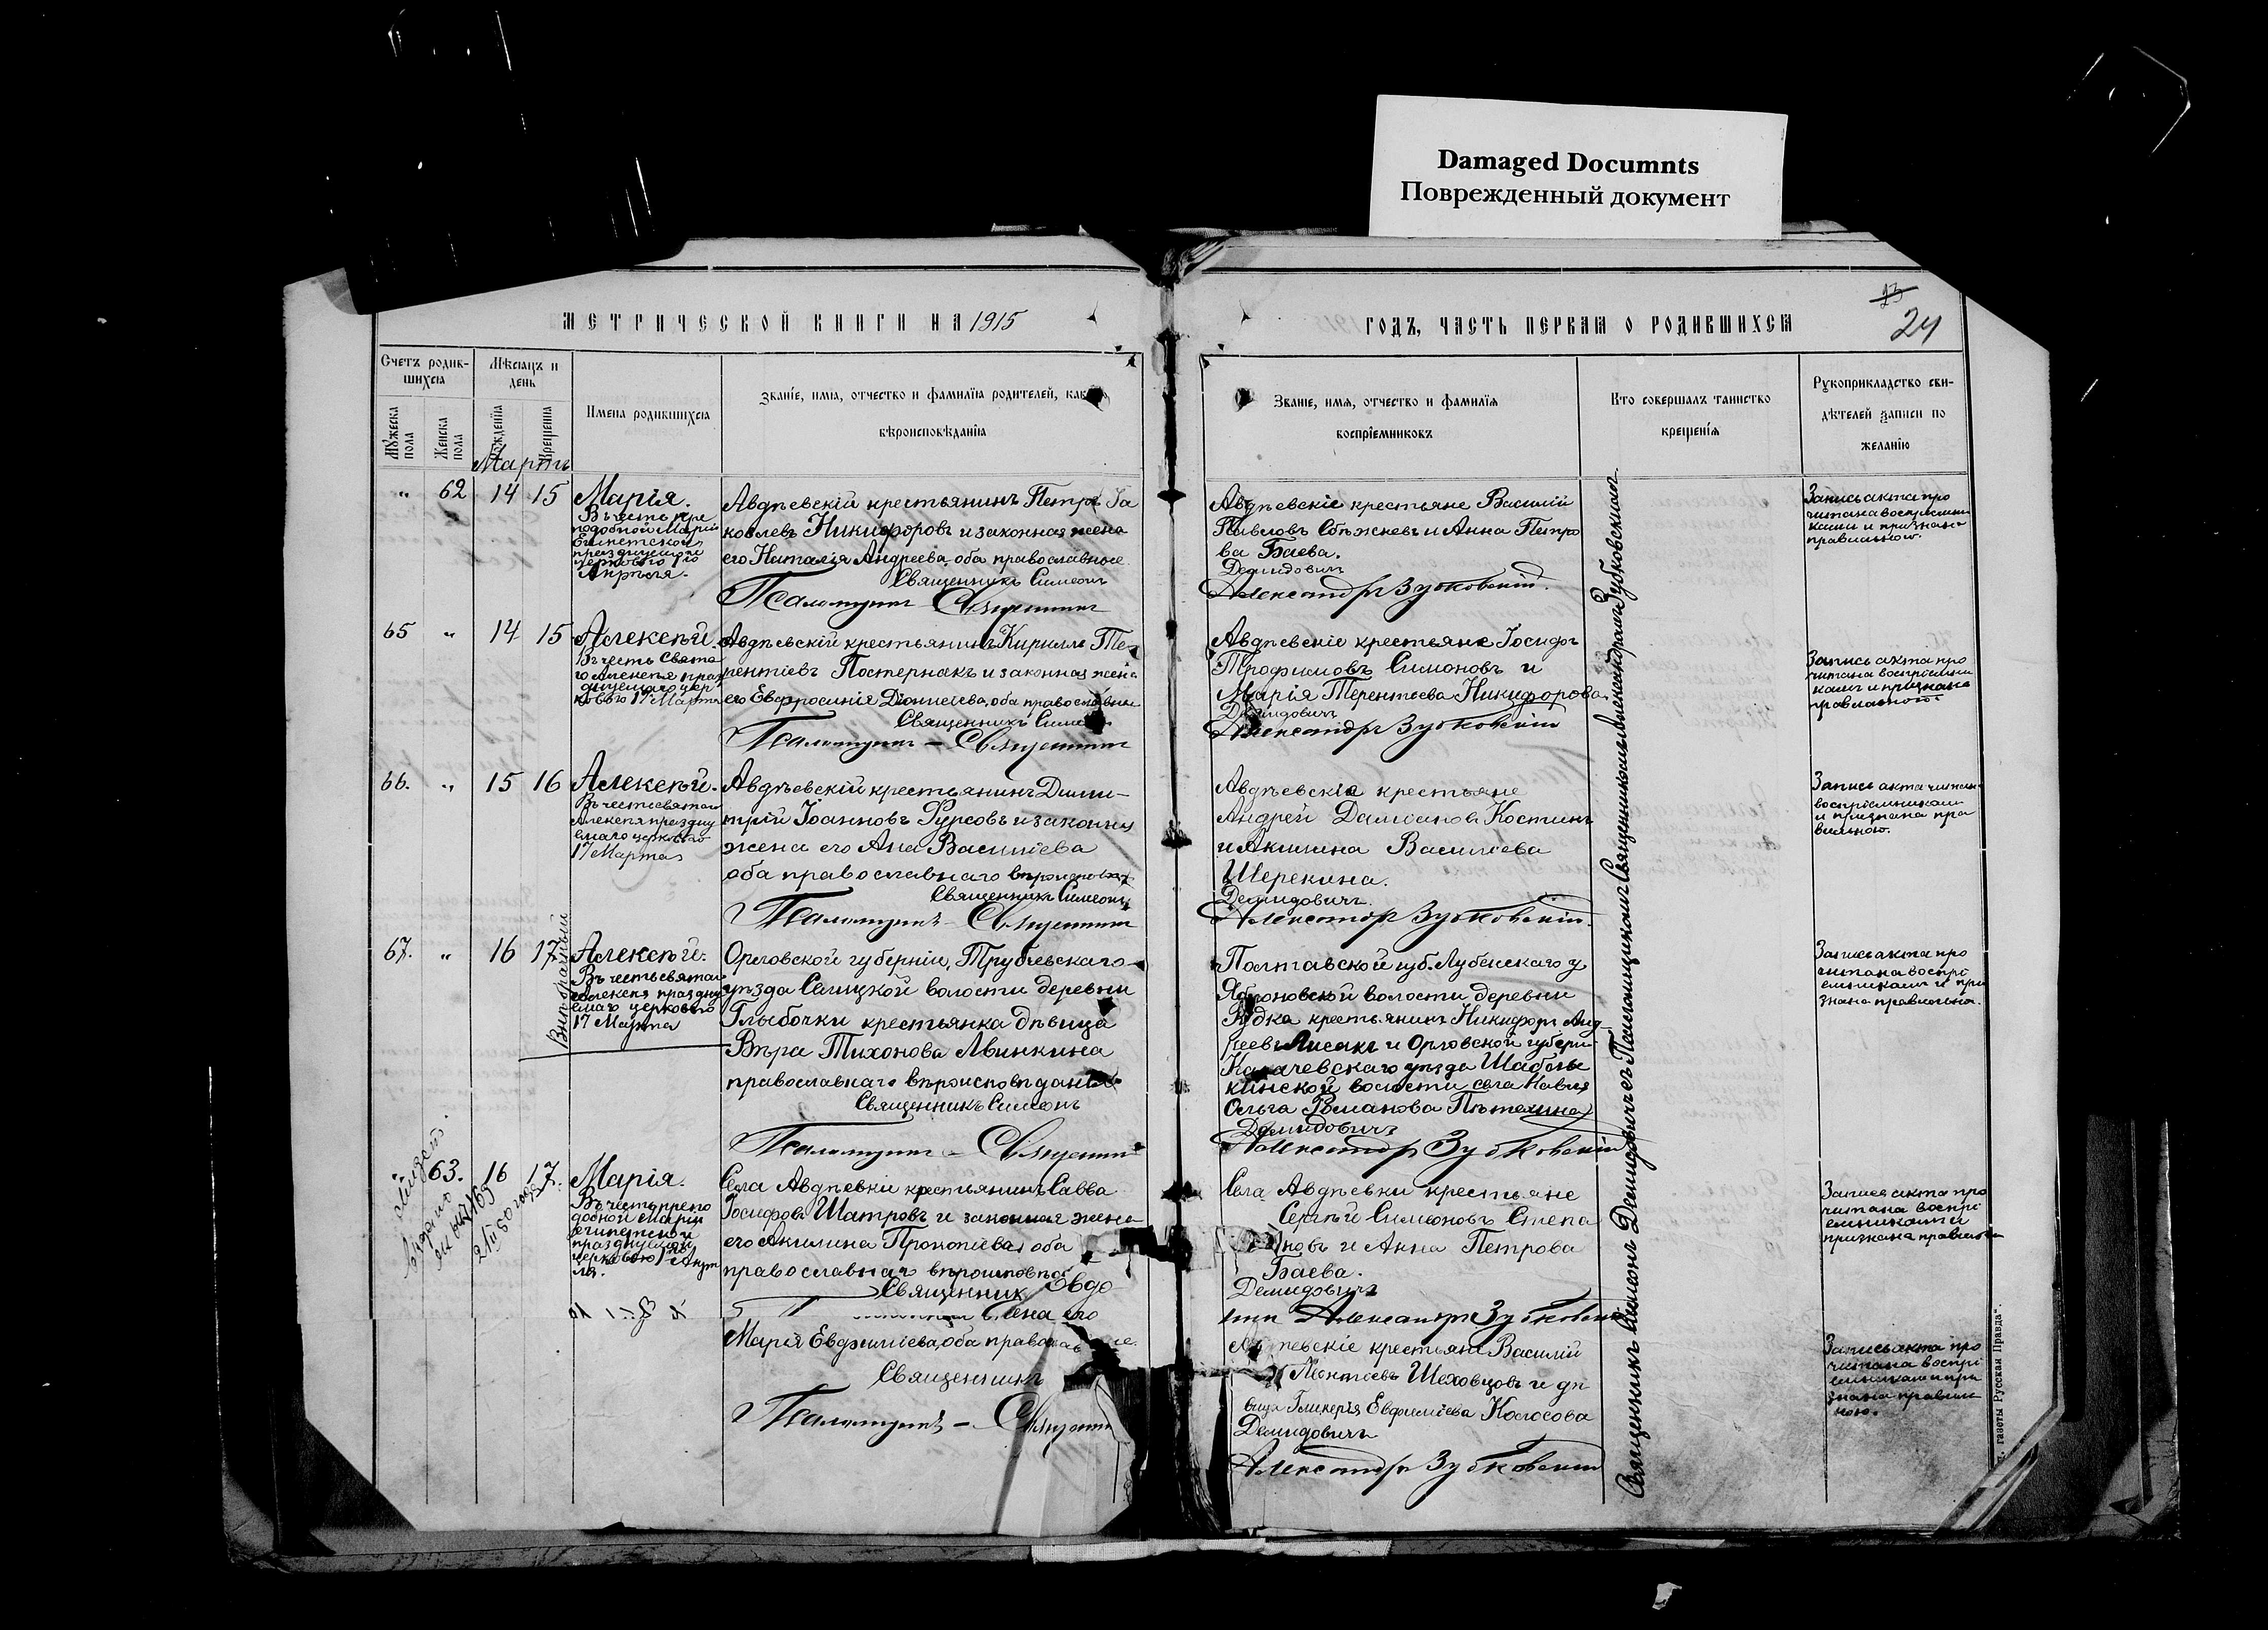 Damaged Documnts
Поврежденный документ
МЕТРИЧЕСКОЙ КНИГИ НА 1915
ГОДЪ, ЧАСТЬ ПЕРВАЯ О РОДИВШИХСЯ
23
24
Счетъ родив-
шихся
Мѣсяцъ и
день
Мужеска
пола
Женска
пола
Рожденія
Крещенія
Имена родившихся
Званіе, имя, отчество и фамилія родителей, и как
вѣроисповѣданія
Званіе, имя, отчество и фамилія
воспріемниковъ
Кто совершалъ таинство
крещенія
Рукоприкладство сви-
дѣтелей записи по
желанію
Мартъ
" 62 14 15 Марія.
Въ честь пре
подобной Маріи
Египетской
празднуемой
церковью 1го
Апрѣля.
Авдѣевскій крестьянинъ Петръ Іа
ковлевъ Никифоровъ и законная жена
его Наталія Андреева, оба православные
Священникъ Симеонъ
Псаломщикъ Священникъ
Авдѣевскіе крестьяне Василій
Павловъ и Анна Петро
ва Баева.
Демидовичъ
Александръ Зубковскій.
Запись акта про
читана воспріемни
ками и признана
правильною.
65 " 14 15 Алексѣй.
Въ честь Свята
го Алексѣя праз
днуемаго цер
ковью 17 Марта
Авдѣевскій крестьянинъ Кириллъ Те-
рентіевъ Постернакъ и законная жена
его Евфросинія Діонисіева, оба православные
Священникъ Симеонъ
Псаломщикъ — Священникъ
Авдѣевскіе крестьяне Іосифъ
Трофимовъ Симоновъ и
Марія Терентіева Никифорова.
Демидовичъ
Александръ Зубковскій
Запись акта про
читана воспріемни
ками и признана
правильною
66. " 15 16 Алексѣй.
Въ честь святаго
Алексѣя праздну
емаго церковью
17 Марта
Авдѣевскій крестьянинъ Дими-
трій Іоанновъ Фурсовъ и законная
жена его Анна Василіева
оба православнаго вѣроисповѣд
Священникъ Симеонъ
Псаломщикъ — Священникъ
Авдѣевскіе крестьяне
Андрей Даміановъ Костинъ
и Акилина Василіева
Шерекина.
Демидовичъ.
Александръ Зубковскій.
Запись акта читана
воспріемниками
и признана пра
вильною.
67. " 16 17 Алексѣй.
Внѣбрачный
Въ честь святаго
Алексѣя праздну
емаго церковью
17 Марта
Орловской губерніи, Трубчевскаго
уѣзда Селицкой волости деревни
Глыбочки крестьянка дѣвица
Вѣра Тихонова Авинкина
православнаго вѣроисповѣданія
Священникъ Симеонъ
Псаломщикъ — Священникъ
Полтавской губ. Лубенскаго у
Яблоновской волости деревни
Рудка крестьянинъ Никифоръ Анд
реевъ Лисакъ и Орловской губерн
Карачевскаго уѣзда Шаблы
кинской волости села Навля
Ольга Романова Пѣтехина
Демидовичъ
Александръ Зубковскій
Запись акта про
читана воспрі
емниками и при
знана правильною.
" 63. 16 17. Марія.
Въ честь препо
добной Маріи
египетской
празднуемой
церковью 1го Апрѣ
ля.
Села Авдѣевки крестьянинъ Савва
Іосифовъ Шатровъ и законная жена
его Акилина Прокопіева, оба
православнаго вѣроисповѣд
Священник
Села Авдѣевки крестьяне
Сергѣй Симеоновъ Степа
новъ и Анна Петрова
Баева.
Демидовичъ
Александръ Зубковскій
Запись акта про
читана воспрі
емниками и
признана правильно
жена его
Марія Евфиміева, оба православные.
Священникъ
Псаломщикъ — Священникъ
Авдѣевскіе крестьяне Василій
Леонтіевъ Шеховцовъ и дѣ
вица Гликерія Евфиміева Колосова
Демидовичъ
Александръ Зубковскій
Запись акта про
читана воспрі
емниками и при
знана правиль
ною.
Священникъ Симеонъ Демидовичъ съ Псаломщикомъ Священникомъ Александромъ Зубковскимъ
газеты „Русская Правда".